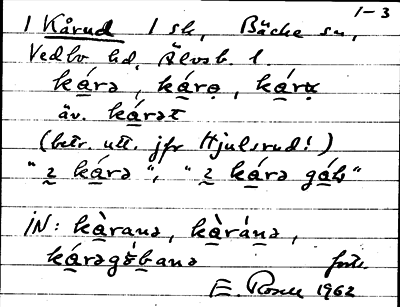 1–3
1 Kårud 1 sk, Bäcke sn,
Vedbo hd, Älvsb. l.
kárə, kárə̣, kárɤ̣
äv. kárət
(betr. utt. jfr Hjulsrud!)
"2 kárə", "2 kárə gáb"
iN: kàranə, kàránə,
kárəgɔ́banə forts.
E. Rosell 1962